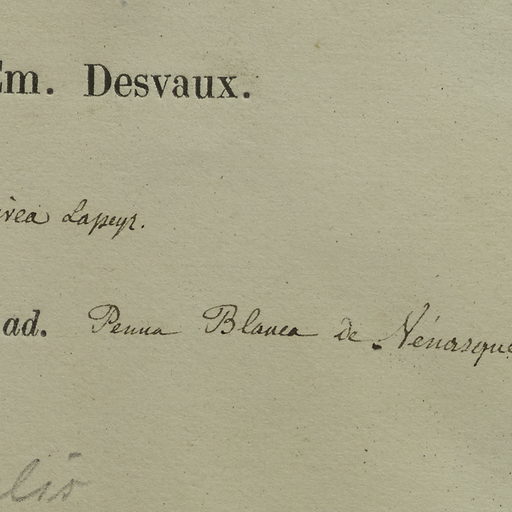 Em. Desvaux.
irea Lapeyr.
ad. Penna Blanca de Vénasque
lis